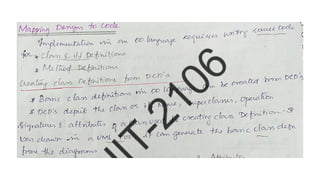 Mapping Designs to Code
Implementation in an OO language requires writing source code
for • Class & Definitions
• Method Definitions
Creating class Definitions from DCD's
• Basic class definitions in OO can be created from DCD's
• DCD's depict the class or superclasses, operation
Signatures & attributes of a class used creating class Definition. If
was drawn in a UML tool it can generate the basic class defn
from the diagrams
IIT-2106